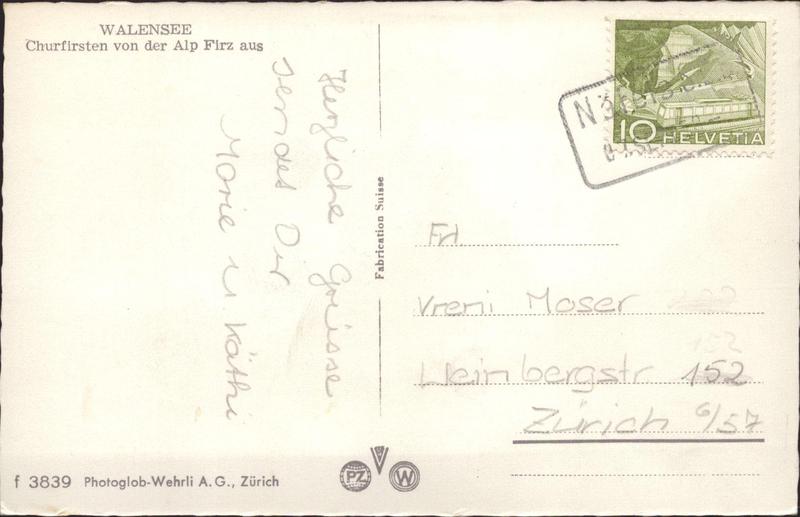 WALENSEE
Churfirsten von der Alp Firz aus
Herzliche Grüsse
sendet Dir
Marie u. Käthi
Fabrication Suisse
10 HELVETIA
Frl.
Vreni Moser
152
Weinbergstr 152
Zürich 6/57
f 3839 Photoglob-Wehrli A.G., Zürich
PZ W